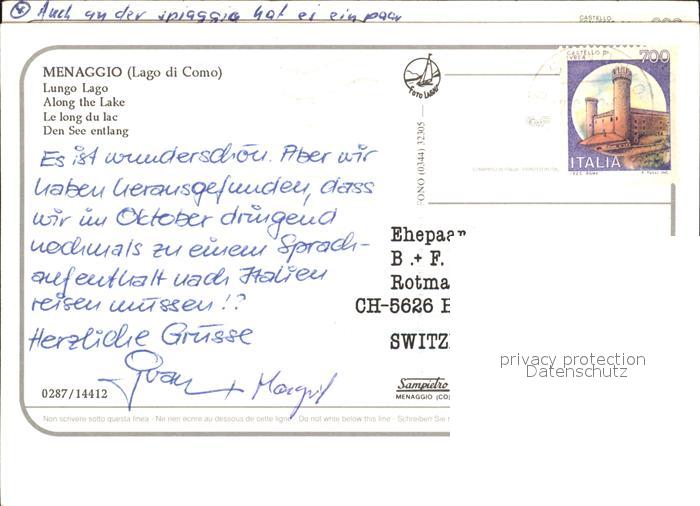 Auch an der spiaggia hat es ein paar
CASTELLO
MENAGGIO (Lago di Como)
Lungo Lago
Along the Lake
Le long du lac
Den See entlang
FOTO LARIO
FONO (0344) 32305
CASTELLO DI IVREA 700
ITALIA
I.P.Z.S. ROMA
Es ist wunderschön. Aber wir
haben herausgefunden, dass
wir im Oktober dringend
nochmals zu einem Sprach-
aufenthalt nach Italien
reisen müssen!?
Herzliche Grüsse
+ Margrit
Ehepaar
B.+ F.
Rotma
CH-5626 H
SWITZ
privacy protection
Datenschutz
0287/14412
Sampietro
MENAGGIO (CO)
Non scrivere sotto questa linea - Ne rien écrire au dessous de cette ligne - Do not write below this line - Schreiben Sie n